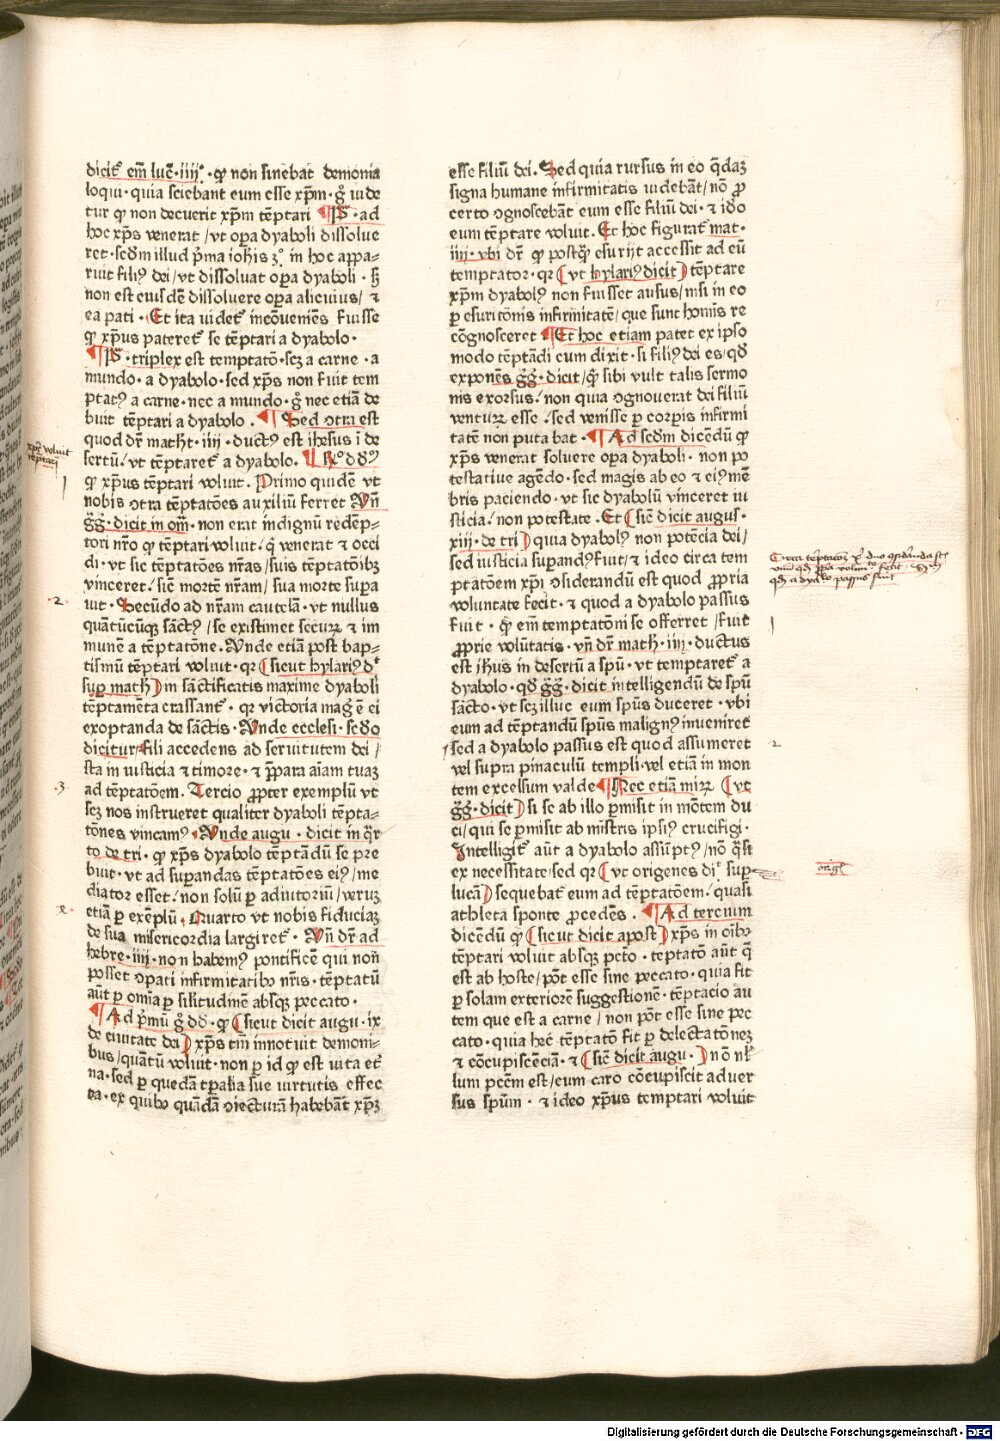 dicit᷑ em̄ luc̄·iiij°·ꝙ non sinebat demonia
loqui·quia sciebant eum esse xp̄m·g̊ uide
tur ꝙ non decuerit xp̄m tēptari ¶ P̄ᵃ·ad
hoc xp̄s venerat/vt oꝑa dyaboli dissolue
ret·scd̄m illud p̄ma iohis 3°·in hoc appa⸗
ruit filiꝰ dei/vt dissoluat oꝑa dyaboli·sꝫ
non est eiusdē dissoluere oꝑa alicuius/⁊
ea pati·Et ita uidet᷑ incōueniēs fuisse
ꝙ xp̄us pateret᷑ se tēptari a dyabolo·
¶ P̄ᵃ·triplex est temptatō·scꝫ a carne·a
mundo·a dyabolo·sed xp̄s non fuit tem
ptatꝰ a carne·nec a mundo·g̊ nec etiā de
buit tēptari a dyabolo·¶ Sed ꝯtra est
quod dr̄ math̄·iiij·ductꝰ est ihesus ī de
sertū/vt tēptaret᷑ a dyabolo·¶ R°dd°ꝰ
ꝙ xp̄us tēptari voluit·Primo quidē vt
nobis ꝯtra tēptatōes auxiliū ferret Vn̄
ḡḡ·dicit in om̄·non erat indignū redēp⸗
tori nr̄o ꝙ tēptari voluit·q̄ venerat ⁊ occi
di·vt sic tēptatōes nr̄as/suis tēptatōibꝫ
vinceret·sic̄ mortē nr̄am/sua morte suꝑa
uit·Secūdo ad nr̄am cautelā·vt nullus
quātūcūqꝫ sāctꝰ/se existimet securꝝ ⁊ im
munē a tēptatōne·Vnde etiā post bap⸗
tismū tēptari voluit·qꝛ (sicut hylariꝰ d᷑
suꝑ math) in sāctificatis maxime dyaboli
tēptamēta crassant᷑·qꝛ victoria magꝭ ē ei
exoptanda de sāctis·Vnde ecclesi·scd̄o
dicitur/fili accedens ad seruitutem dei/
sta in iusticia ⁊ timore·⁊ p̄para aīam tuaꝫ
ad tēptatōem·Tercio ꝓpter exemplū vt
scꝫ nos instrueret qualiter dyaboli tēpta⸗
tōnes vincamꝰ·Vnde augu·dicit in q̈r
to de tri·ꝙ xp̄s dyabolo tēptādū se pre
buit·vt ad suꝑandas tēptatōes eiꝰ/me
diator esset/non solū ꝑ adiutoriū/veruꝫ
etiā ꝑ exēplū·Quarto vt nobis fiduciaꝫ
de sua misericordia largiret᷑·Vn̄ dr̄ ad
hebre·iiij·non habemꝰ pontificē qui non̄
posset ꝯpati infirmitatibꝰ nr̄is·tēptatū
aūt ꝑ omīa ꝑ silitudinē absqꝫ peccato·
¶ Ad p̄mū g̊ dd·ꝙ (sicut dicit augu·ix
de ciuitate dei) xp̄s tm̄ innotuit demoni⸗
bus/quātū voluit·non ꝑ id ꝙ est uita et᷑
na·sed ꝑ quedā tꝑalia sue uirtutis effec
ta·ex quibꝰ quādā ꝯiecturā habebāt xp̄ꝫ
esse filiū dei·Sed quia rursus in eo q̄daꝫ
signa humane infirmitatis uidebāt/nō ꝓ
certo ꝯgnoscebāt eum esse filiū dei·⁊ iđo
eum tēptare voluit·Et hoc figurat᷑ mat·
iiij·vbi dr̄ ꝙ postꝙ̄ esurijt accessit ad eū
temptator·qꝛ (vt hylariꝰ dicit) tēptare
xp̄m dyabolꝰ non fuisset ausus/nisi in eo
ꝑ esuritōnis infirmitatē/que sunt homīs re
cōgnosceret ¶ Et hoc etiam patet ex ipso
modo tēptādi cum dixit·si filiꝰ dei es/qđ
exponēs ḡḡ·dicit/q̄ sibi vult talis sermo
nis exorsus/non quia ꝯgnouerat dei filiū
venturꝝ esse/sed venisse ꝑ corpis infirmi
tatē non puta bat·¶ Ad scd̄m dicēdū ꝙ
xp̄s venerat soluere oꝑa dyaboli·non po
testatiue agēdo·sed magis ab eo ⁊ eiꝰ mē
bris paciendo·vt sic dyabolū vinceret iu
sticia/non potestate·Et (sic̄ dicit augus·
xiij·de tri) quia dyabolꝰ non potēcia dei/
sed iusticia suꝑandꝰ fuit/⁊ ideo circa tem
ptatōem xp̄i ꝯsiderandū est quod ꝓpria
voluntate fecit·⁊ quod a dyabolo passus
fuit·q̄ em̄ temptatōni se offerret/fuit
ꝓprie volūtatis·vn̄ dr̄ math·iiij·ductus
est ih̄us in desertū a spū·vt temptaret᷑ a
dyabolo·qđ ḡḡ·dicit intelligendū de spū
sācto·vt scꝫ illuc eum spūs duceret·vbi
eum ad tēptandū spūs malignꝰ inueniret
/sed a dyabolo passus est quod assumeret᷑
vel supra pinaculū templi·vel etiā in mon
tem excelsum valde ¶ Nec etiā mirꝝ (vt
ḡḡ·dicit) si se ab illo ꝑmisit in mōtem du
ci/qui se ꝑmisit ab mīstris ipsiꝰ crucifigi·
Intelligit᷑ aūt a dyabolo assūptꝰ/nō q̈si
ex necessitate/sed qꝛ (vt origenes di᷑ suꝑ
lucā) sequebat᷑ eum ad tēptatōem/quasi
athleta sponte ꝓcedēs·¶ Ad tercium
dicēdū ꝙ (sicut dicit apost) xp̄s in oībꝰ
tēptari voluit absqꝫ pctō·teptatō aūt q̄
est ab hoste/pōt esse sine peccato·quia fit
ꝑ solam exteriorē suggestionē·tēptacio au
tem que est a carne/non pōt esse sine pec
cato·quia hec tēptatō fit ꝑ delectatōneꝫ
⁊ cōcupiscēciā·⁊ (sic̄ dicit augu·) nō nl̄
lum pccm̄ est/cum caro cōcupiscit aduer
sus spūm·⁊ ideo xp̄us temptari voluit
xp̄c voluit
tēptari
·2·
·3·
2
Digitalisierung gefördert durch die Deutsche Forschungsgemeinschaft - DFG